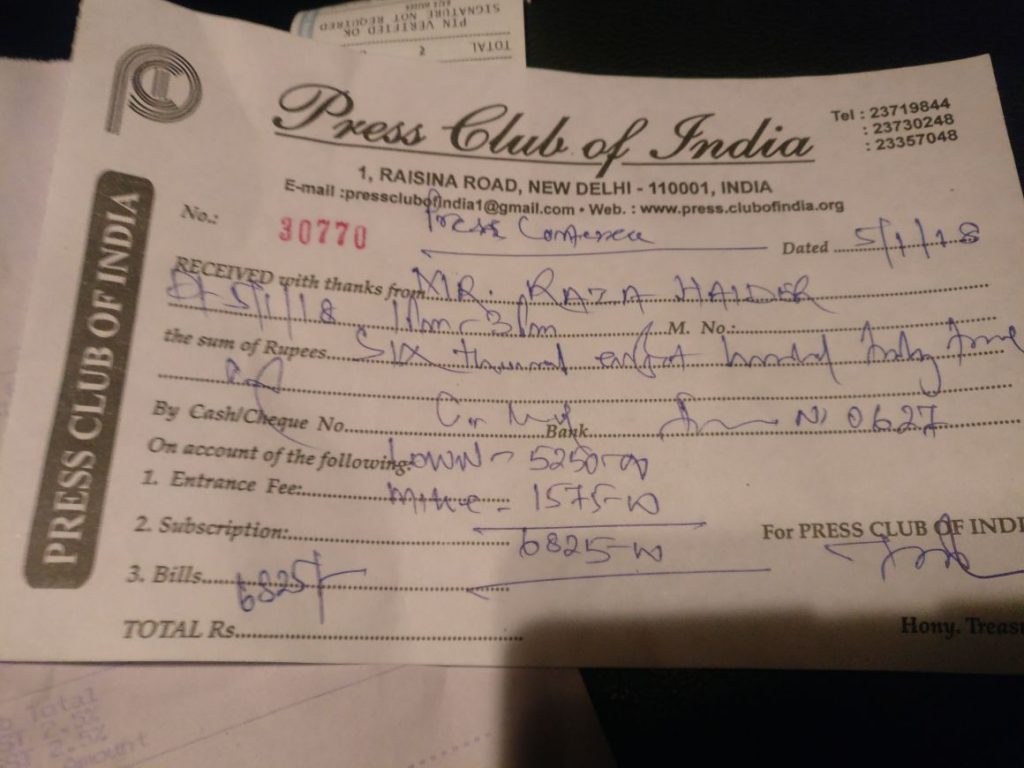 SIGNATURE NOT REQUIRED
PIN VERIFIED OK
TOTAL
Press Club of India
Tel : 23719844
: 23730248
: 23357048
1, RAISINA ROAD, NEW DELHI - 110001, INDIA
E-mail :pressclubofindia1@gmail.com • Web. : www.press.clubofindia.org
PRESS CLUB OF INDIA
No.: 30770 Press Conference Dated 5/1/18
RECEIVED with thanks from MR. RAZA HAIDER
Dt 5/1/18 11am-3pm M. No.:
the sum of Rupees Six thousand eight hundred twenty five
By Cash/Cheque No. Bank 0627
On account of the following: LOWN - 5250-00
1. Entrance Fee: 1575-00
2. Subscription: 6825-00
For PRESS CLUB OF INDI
3. Bills 6825/-
TOTAL Rs.
Hony. Treas
Total
2.5%
2.5%
Amount